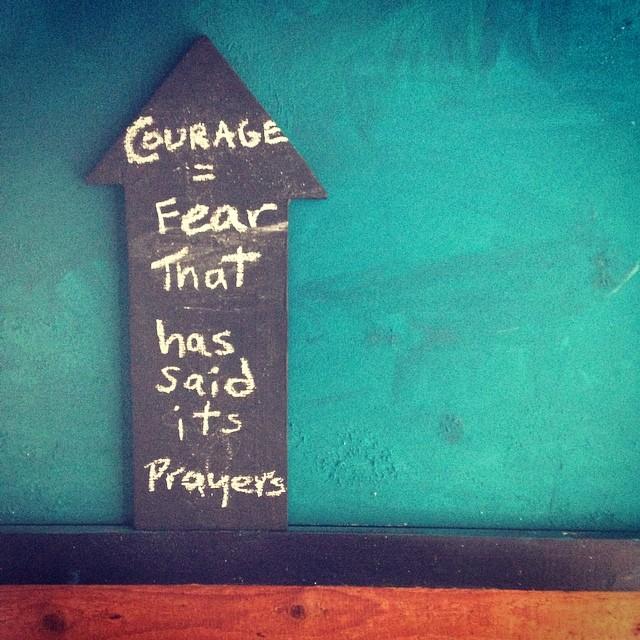 COURAGE
=
Fear
That
has
said
its
Prayers